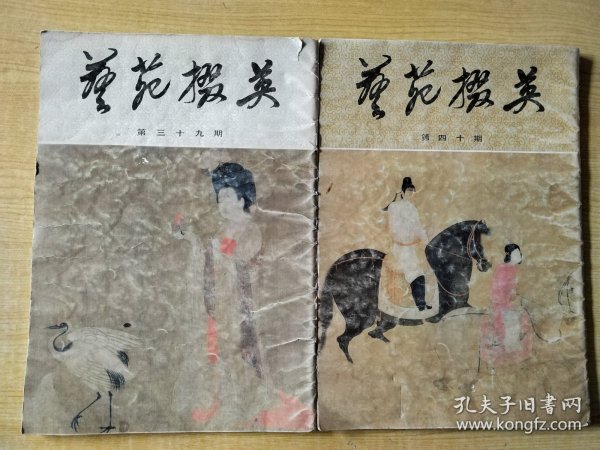 藝苑掇英
第三十九期
藝苑掇英
第四十期
孔夫子旧书网
www.kongfz.com